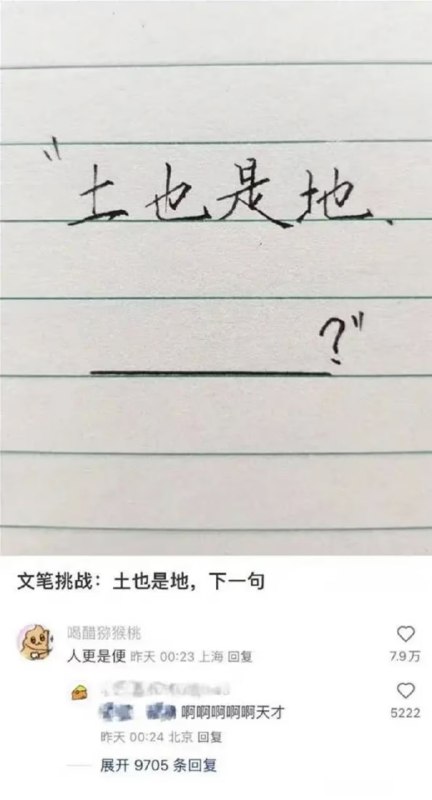 “土也是地、
______?”
文笔挑战：土也是地，下一句
喝醋猕猴桃
人更是便 昨天 00:23 上海 回复
7.9万
啊啊啊啊啊天才
5222
昨天 00:24 北京 回复
展开 9705 条回复